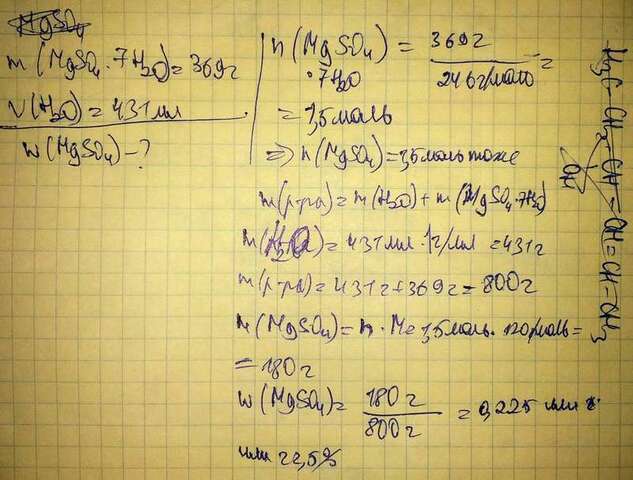 m (MgSO₄ · 7H₂O) = 369г
V(H₂O) = 431 мл
w (MgSO₄) - ?
n (MgSO₄ · 7H₂O) = 369г / 246г/моль =
= 1,5 моль
=> n (MgSO₄) = 1,5 моль тоже
m(р-ра) = m (H₂O) + m (MgSO₄ · 7H₂O)
m(H₂O) = 431 мл · 1г/мл = 431г
m(р-ра) = 431г + 369г = 800г
m (MgSO₄) = n · M = 1,5 моль · 120г/моль =
= 180г
w (MgSO₄) = 180г / 800г = 0,225 или
или 22,5%
H₃C - CH₂ - CH = CH = CH - CH₃
OH